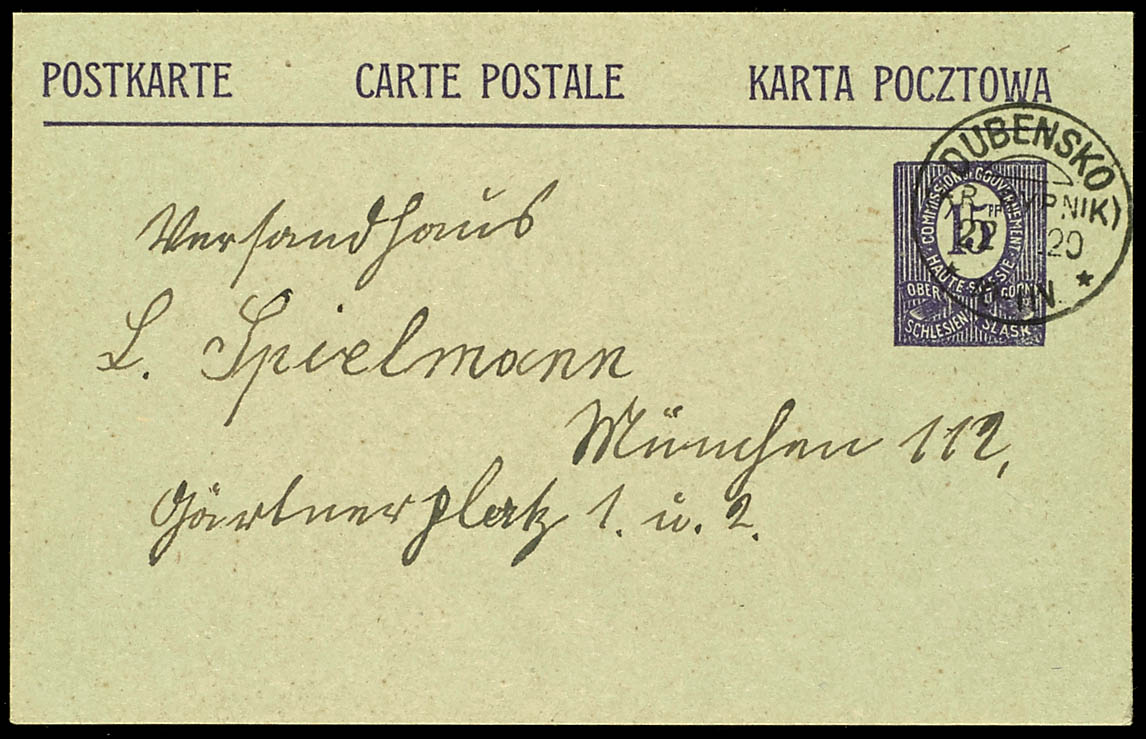 POSTKARTE CARTE POSTALE KARTA POCZTOWA
DUBENSKO
22 20
COMMISSION GOUVERNEMENT
15
HAUTE
OBER
SCHLESIEN ŚLĄSK
Versandhaus
L. Spielmann
München 112,
Gärtnerplatz 1. u. 2.